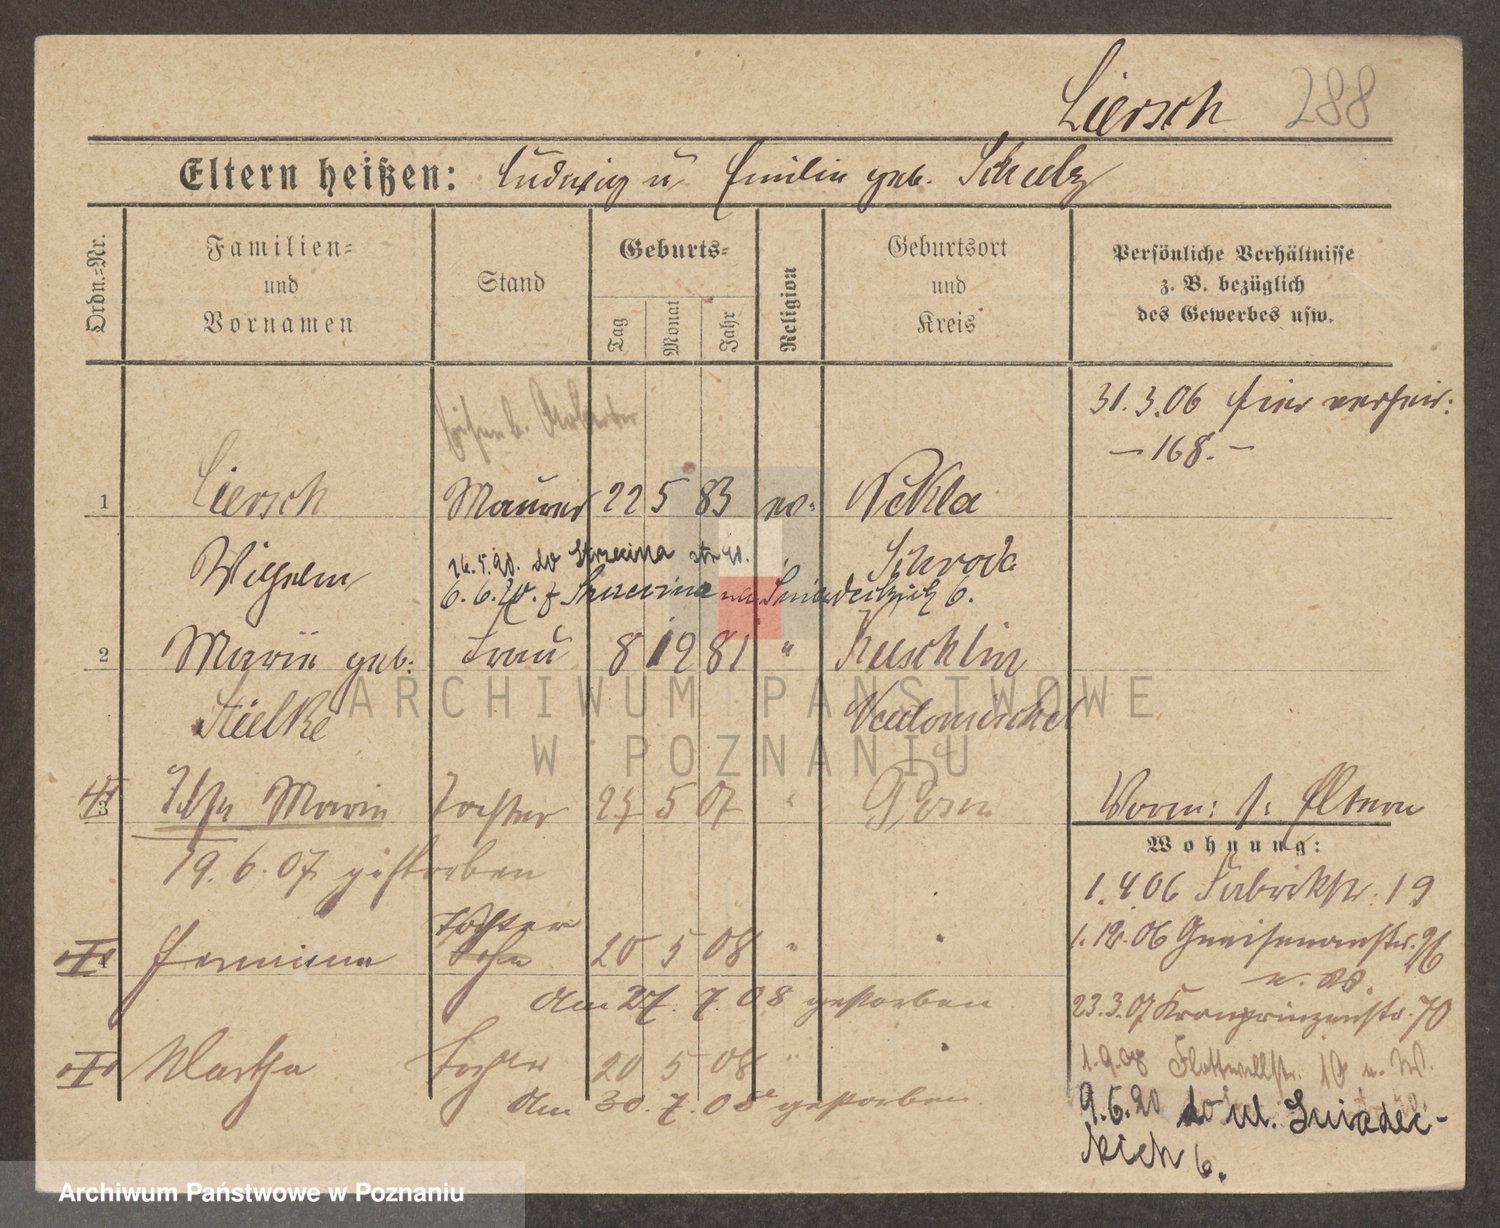 Liersch 288
Eltern heißen: Ludwig u Emilie geb. Schulz
Ordn.=Nr.
Familien=
und
Vornamen
Stand
Geburts=
Tag
Monat
Jahr
Religion
Geburtsort
und
Kreis
Persönliche Verhältnisse
z. B. bezüglich
des Gewerbes usw.
31.3.06 hier verheir:
- 168. -
Arbeiter
1 Liersch Maurer 22 5 83 ev: Nekla
Wilhelm Schroda
16.5.20. do str. 40.
6.6.20. z Śniadeckich 6.
2 Marie geb: Frau 8 12 81 " Kuschlin
Stielke Neutomischel
ARCHIWUM PAŃSTWOWE
W POZNANIU
3 Marie Tochter 27 5 07 " Posen
Worm: s: Eltern
19.6.07 gestorben
Wohnung:
1.4.06 Fabrikstr: 19
Tochter
4 Sohn 20 5 08 "
1.12.06 Gneisenaustr.
am 27.7.08 gestorben
23.3.07 Kronprinzenstr. 70
Martha Tochter 20 5 08 "
am 30.7.08 gestorben
1.9.08 Flottwellstr. 10 n. W.
9.6.20 do ul. Śniadec-
kich 6.
Archiwum Państwowe w Poznaniu